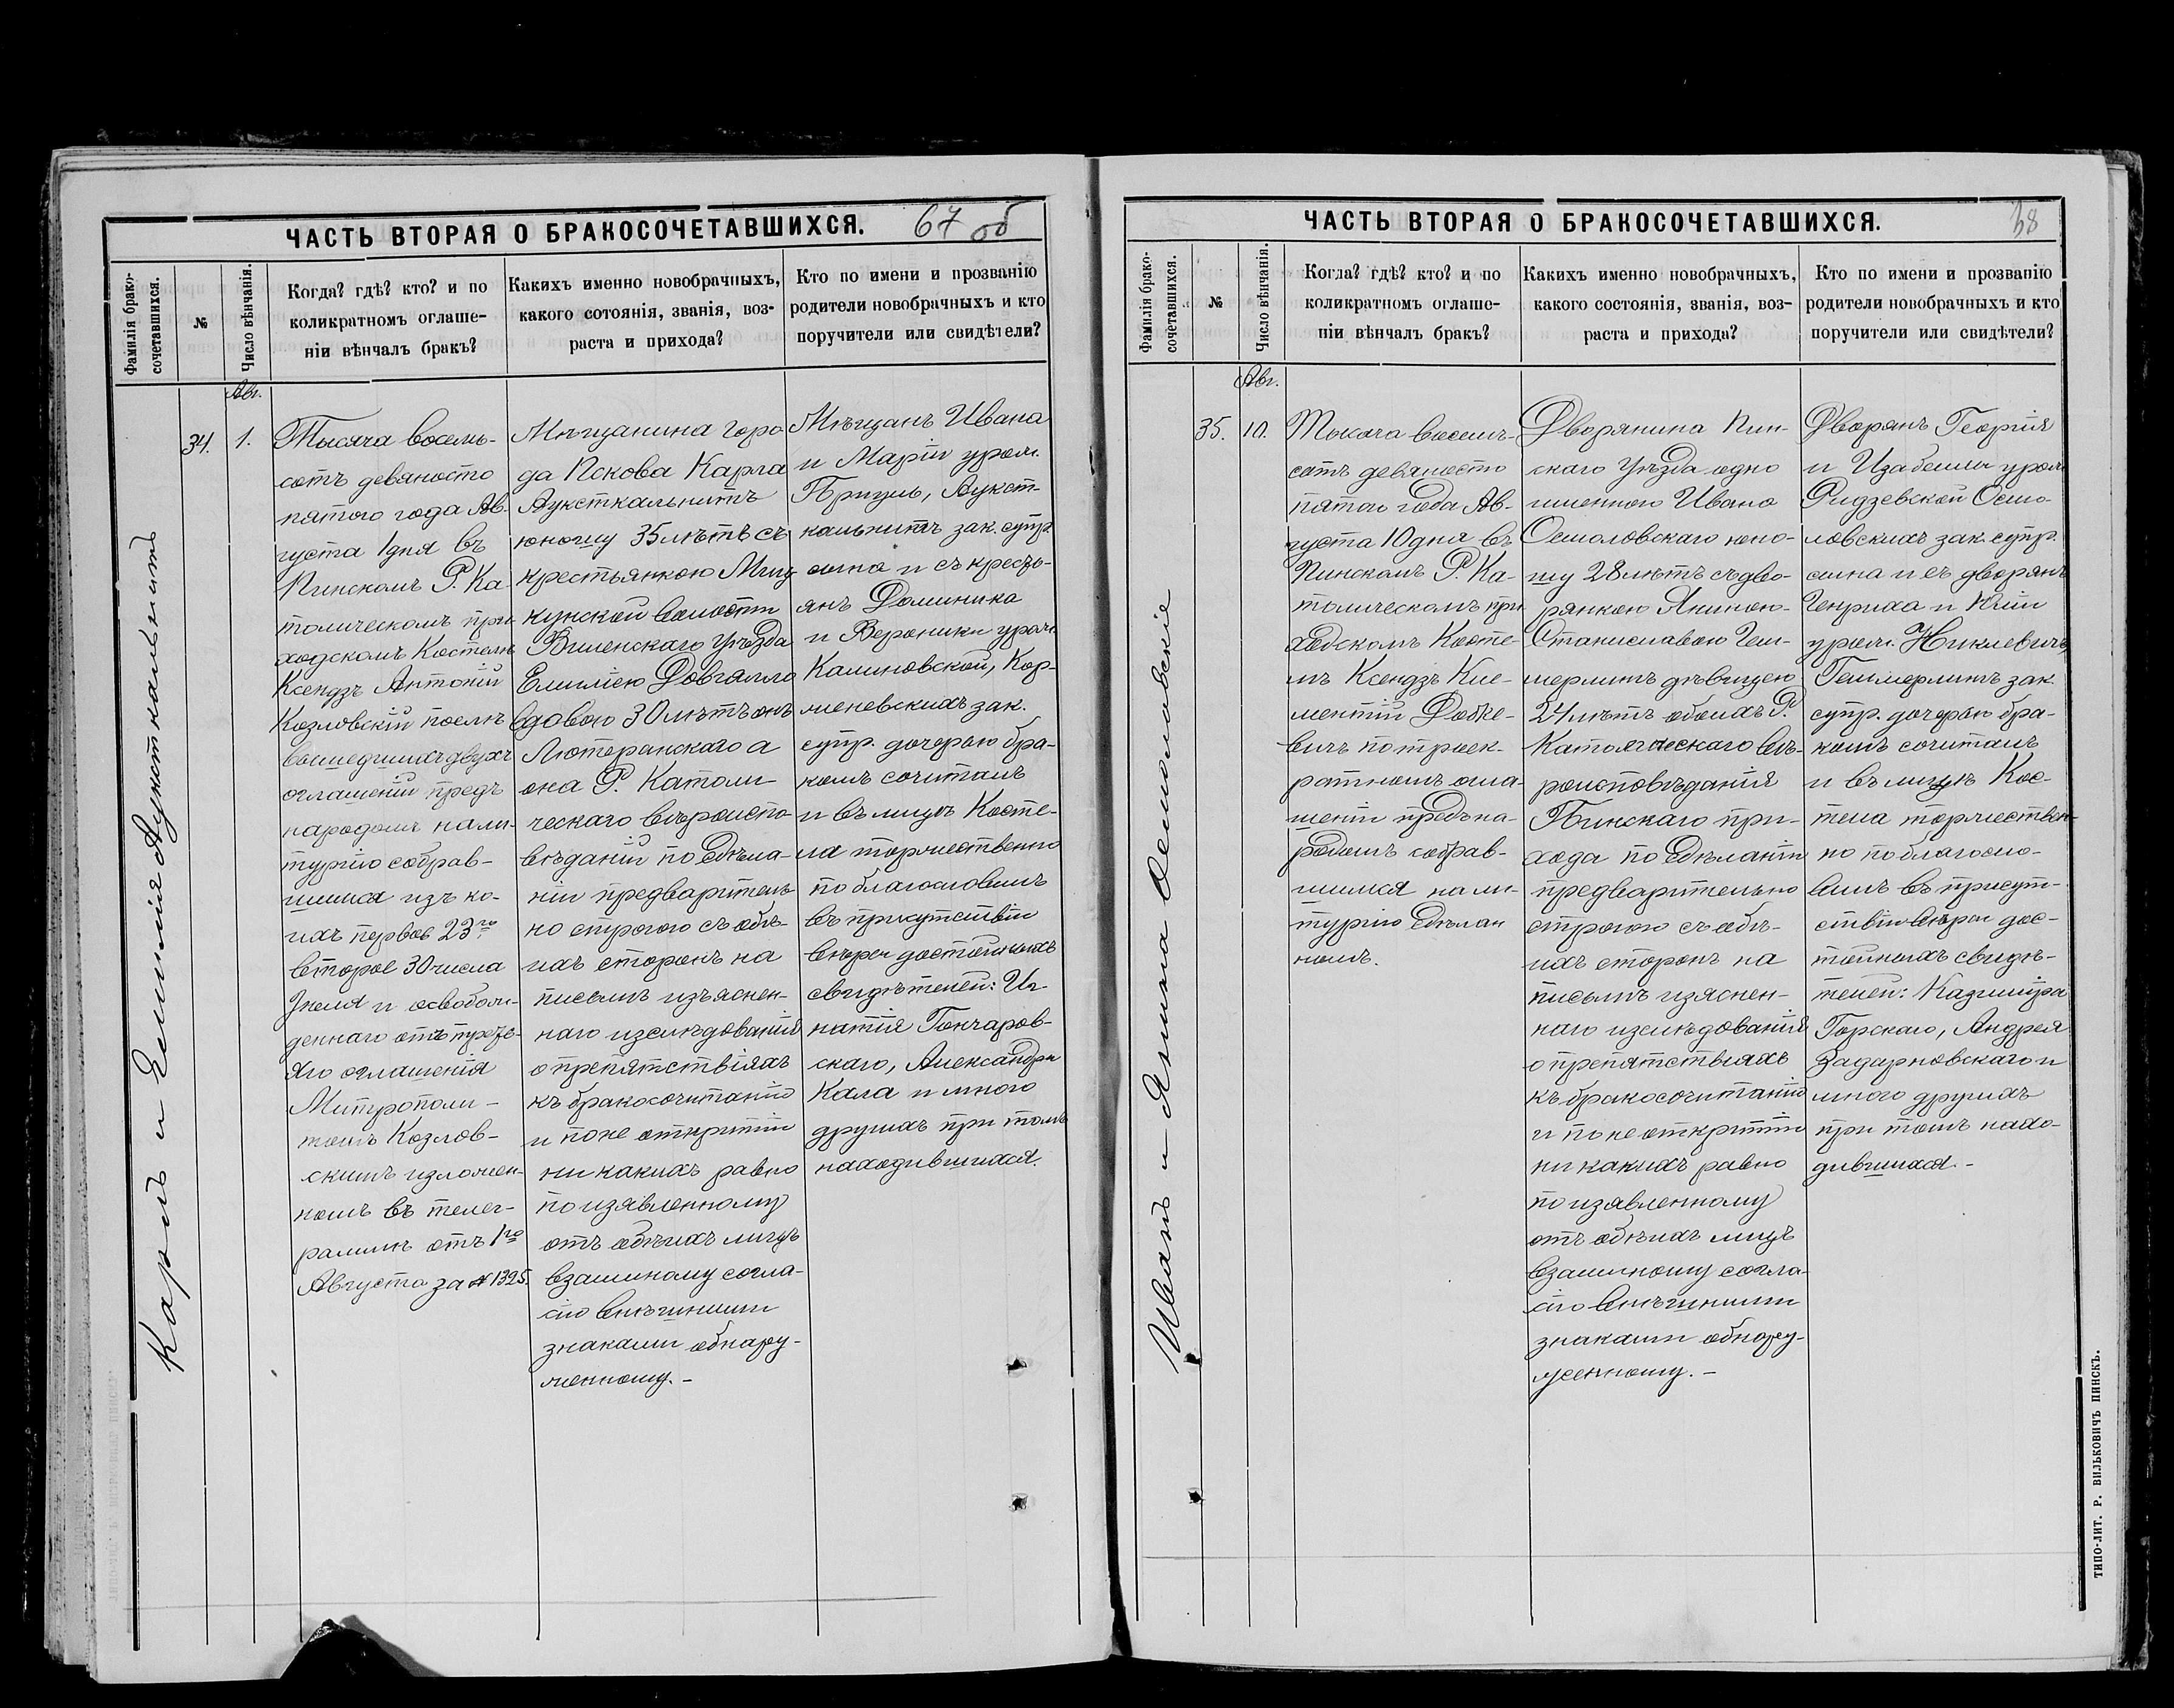 ЧАСТЬ ВТОРАЯ О БРАКОСОЧЕТАВШИХСЯ.
67 об
Фамилія брако-
сочетавшихся.
№
Число вѣнчанія.
Когда? гдѣ? кто? и по
коликратномъ оглаше-
ніи вѣнчалъ бракъ?
Каких именно новобрачныхъ,
какого сотоянія, званія, воз-
раста и прихода?
Кто по имени и прозванію
родители новобрачныхъ и кто
поручители или свидѣтели?
Карлъ и Емилія Аукткальнитъ
34.
Авг.
1.
Тысяча восемь-
сотъ девяносто
пятого года Ав-
густа 1 дня въ
Пинскомъ Р. Ка-
толическомъ при-
ходскомъ Костелѣ
Ксендзъ Антоній
Козловскій послѣ
вышедшихъ двухъ
оглашеній предъ
народомъ на ли-
тургію собрав-
шимся изъ ко-
ихъ первое 23го
второе 30 числа
Іюля и освобож-
деннаго отъ треть-
яго оглашенія
Митрополи-
томъ Козлов-
скимъ изложен-
номъ въ телег-
раммѣ отъ 1го
Августа за № 1325.
Мѣщанина горо
да Пскова Карла
Ауксткальнитъ
юношу 35 лѣтъ съ
крестьянкою Миц
кунской волости
Виленскаго Уѣзда
Емиліею Довгялло
вдовою 30 лѣтъ онъ
Лютеранскаго а
она Р. Католи-
ческаго вѣроиспо-
вѣданій по сдѣла-
ніи предваритель-
но строгого съ обѣ-
ихъ сторонъ на
письмѣ изъяснен-
наго изслѣдованія
о препятствіяхъ
къ бракосочитанію
и по не открытіи
ни какихъ равно
по изявленному
отъ обѣихъ лицъ
взаимному согла-
сію внѣшними
знаками обнару-
женному. -
Мѣщанъ Ивана
и Маріи урож.
Призиь, Аукст-
кальнитъ зак. супр.
сына и съ кресть-
янъ Доминика
и Вероники урож.
Калиновской, Кор-
женевскихъ зак.
супр. дочерью бра-
комъ сочиталъ
и въ лицѣ Косте-
ла торжественно
по благословилъ
въ присутствіи
вѣры достойныхъ
свидѣтелей: Иг-
натія Гончаров-
скаго, Александра
Кала и много
другихъ при томъ
находившихся.
ЧАСТЬ ВТОРАЯ О БРАКОСОЧЕТАВШИХСЯ.
Фамилія брако-
сочетавшихся.
№
Число вѣнчанія.
Когда? гдѣ? кто? и по
коликратномъ оглаше-
ніи вѣнчалъ бракъ?
Какихъ именно новобрачныхъ,
какого состоянія, званія, воз-
раста и прихода?
Кто по имени и прозванію
родители новобрачныхъ и кто
поручители или свидѣтели?
Иванъ и Янина Осмоловскіе
35.
Авг.
10.
Тысяча восемъ-
сотъ девяносто
пятаго года Ав-
густа 10 дня въ
Пинскомъ Р. Ка-
толическомъ при
ходскомъ Косте-
лѣ Ксендзъ Кле-
ментій Добке-
вичъ по троек-
ратномъ огла-
шеніи предъ на-
родомъ собрав-
шимся на ли-
тургію сдѣлан
номъ.
Дворянина Пин-
скаго Уѣзда одно
именного Ивана
Осмоловскаго юно-
шу 28 лѣтъ съ дво-
рянкою Яниною-
Станиславою Гей-
мерлитъ дѣвицею
24 лѣтъ обоихъ Р.
Католическаго вѣ-
роисповѣданія
Пинскаго при-
хода по сдѣланіи
предварительно
строгою съ обѣ-
ихъ сторонъ на
письмѣ изяснен-
наго изслѣдованія
о препятствіяхъ
къ бракосочитанію
и по не открытіи
ни какихъ равно
по изявленному
отъ обѣихъ лицъ
взаимному согла-
сію внѣшними
знаками обнару-
женному. -
Дворянъ Георгія
и Изабеллы урож.
Ридзевской Осмо-
ловскихъ зак. супр.
сына и съ дворянъ
Генриха и Юліи
урож. Никлевичъ
Геймерлитъ зак.
супр. дочерью бра-
комъ сочиталъ
и въ лицѣ Кос-
тела торжествен-
но по благосло-
вилъ въ присут-
ствіи вѣры дос-
тойныхъ свидѣ-
телей: Казимира
Горскаго, Андрея
Задарновскаго и
много другихъ
при томъ нахо-
дившихся. -
ТИПО-ЛИТ. Р. ВИЛЬКОВИЧЪ ПИНСКЪ.